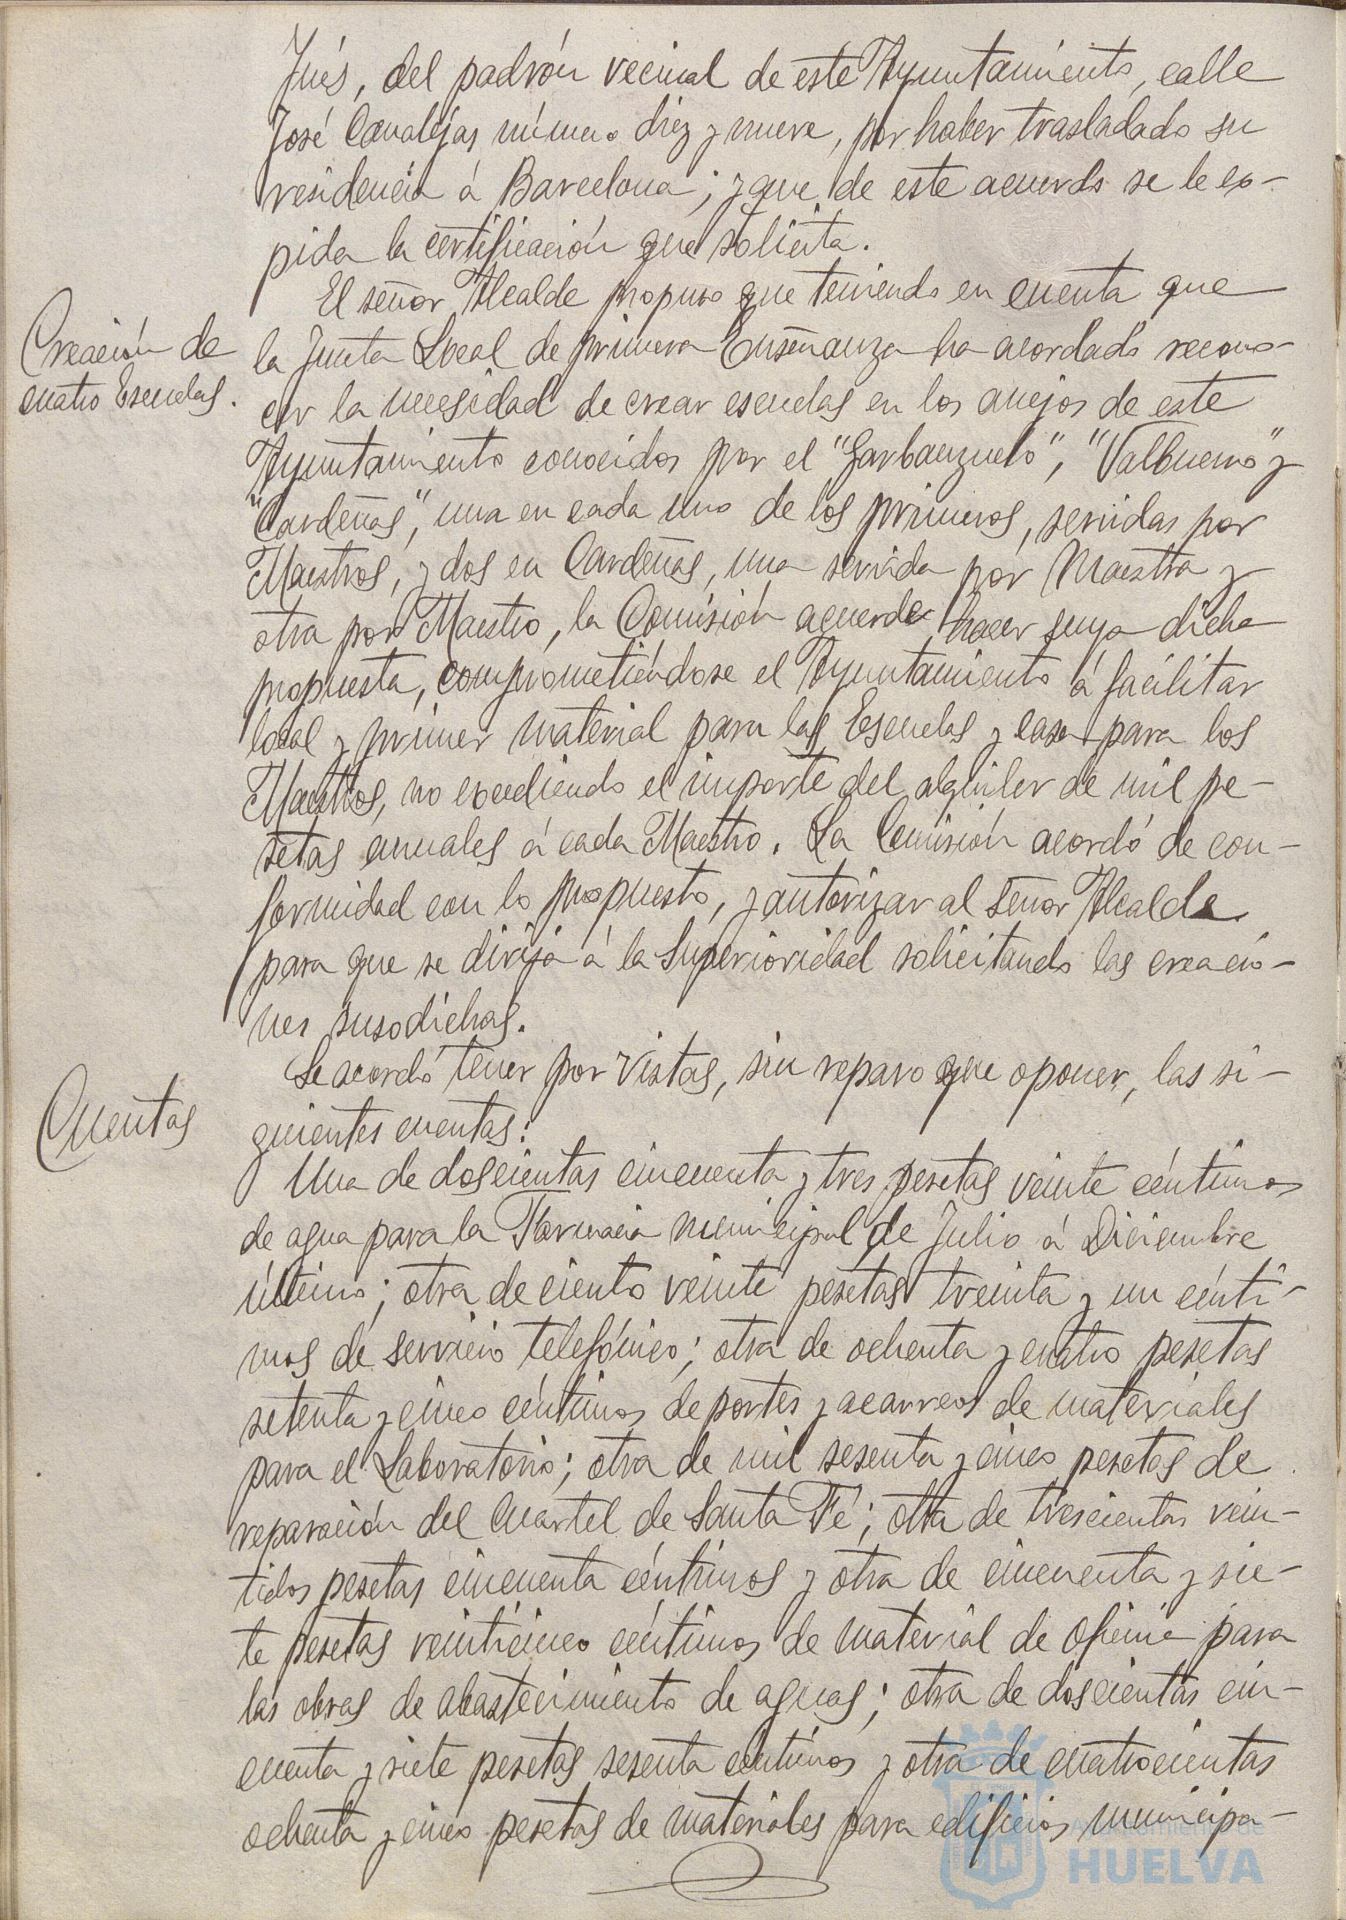 Inés, del padrón vecinal de este Ayuntamiento, calle
José Canalejas número diez y nueve, por haber trasladado su
residencia á Barcelona; y que de este acuerdo se le ex-
pida la certificación que solicita.
El señor Alcalde propuso que teniendo en cuenta que
Creación de
cuatro Escuelas.
la Junta Local de primera Enseñanza ha acordado recono-
cer la necesidad de crear escuelas en los anejos de este
Ayuntamiento conocidos por el "Garbanzuelo", "Valbueno" y
"Cardeñas", una en cada uno de los primeros, servidas por
Maestros, y dos en Cardeñas, una servida por Maestra y
otra por Maestro, la Comisión acuerde hacer suya dicha
propuesta, comprometiéndose el Ayuntamiento á facilitar
local y primer material para las Escuelas y casa para los
Maestros, no excediendo el importe del alquiler de mil pe-
setas anuales á cada Maestro. La Comisión acordó de con-
formidad con lo propuesto, y autorizar al señor Alcalde
para que se dirija á la Superioridad solicitando las creacio-
nes susodichas.
Se acordó tener por vistas, sin reparo que oponer, las si-
Cuentas
guientes cuentas:
Una de doscientas cincuenta y tres pesetas veinte céntimos
de agua para la Farmacia municipal de Julio á Diciembre
último; otra de ciento veinte pesetas treinta y un cénti-
mos de servicio telefónico; otra de ochenta y cuatro pesetas
setenta y cinco céntimos de portes y acarreos de materiales
para el Laboratorio; otra de mil sesenta y cinco pesetas de
reparación del Cuartel de Santa Fé; otra de trescientas vein-
tidos pesetas cincuenta céntimos y otra de cincuenta y sie-
te pesetas veinticinco céntimos de material de oficina para
las obras de abastecimiento de aguas; otra de doscientas cin-
cuenta y siete pesetas sesenta céntimos y otra de cuatrocientas
ochenta y cinco pesetas de materiales para edificios municipa-
Ayuntamiento de
HUELVA